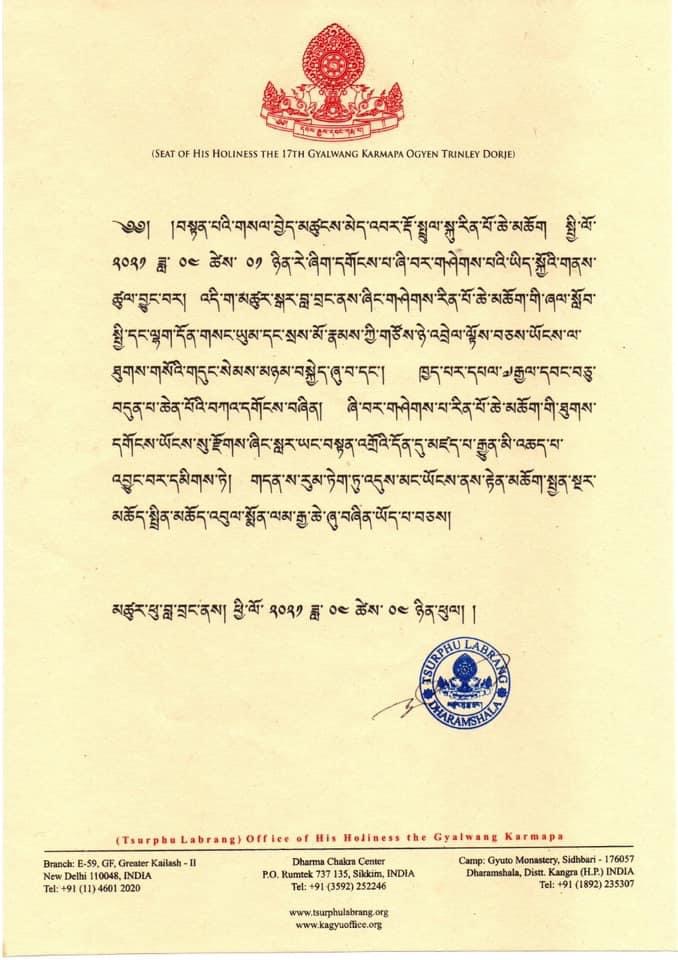 (SEAT OF HIS HOLINESS THE 17TH GYALWANG KARMAPA OGYEN TRINLEY DORJE)
༄༅། །བསྟན་པའི་གསལ་བྱེད་མཚུངས་མེད་འབར་རྡོ་སྤྲུལ་སྐུ་རིན་པོ་ཆེ་མཆོག སྤྱི་ལོ་
༢༠༢༡ ཟླ་ ༠༤ ཚེས་ ༠༡ ཉིན་རེ་ཞིག་དགོངས་པ་ཞི་བར་གཤེགས་པའི་ཡིད་སྐྱོའི་གནས་
ཚུལ་བྱུང་བར། འདི་ག་མཚུར་སྒར་བླ་བྲང་ནས་ཞིང་གཤེགས་རིན་པོ་ཆེ་མཆོག་གི་ཞལ་སློབ་
སྤྱི་དང་ལྷག་དོན་གསང་ཡུམ་དང་སྲས་མོ་རྣམས་ཀྱི་གཙོས་ཉེ་འབྲེལ་ལྟོས་བཅས་ཡོངས་ལ་
ཐུགས་གསོའི་གདུང་སེམས་མཉམ་བསྐྱེད་ཞུ་བ་དང་། ཁྱད་པར་དཔལ་༧རྒྱལ་དབང་བཅུ་
བདུན་པ་ཆེན་པོའི་བཀའ་དགོངས་བཞིན། ཞི་བར་གཤེགས་པ་རིན་པོ་ཆེ་མཆོག་གི་ཐུགས་
དགོངས་ཡོངས་སུ་རྫོགས་ཞིང་སླར་ཡང་བསྟན་འགྲོའི་དོན་དུ་མཛད་པ་རྒྱུན་མི་འཆད་པ་
འབྱུང་བར་དམིགས་ཏེ། གདན་ས་རུམ་ཏེག་ཏུ་འདུས་མང་ཡོངས་ནས་རྟེན་མཆོག་སྤྱན་སྔར་
མཆོད་སྤྲིན་མཆོད་འབུལ་སྨོན་ལམ་རྒྱ་ཆེ་ཞུ་བཞིན་ཡོད་པ་བཅས།
མཚུར་ཕུ་བླ་བྲང་ནས། ཕྱི་ལོ་ ༢༠༢༡ ཟླ་ ༠༤ ཚེས་ ༠༤ ཉིན་ཕུལ། །
TSURPHU LABRANG
DHARAMSHALA
(Tsurphu Labrang) Office of His Holiness the Gyalwang Karmapa
Branch: E-59, GF, Greater Kailash - II
New Delhi 110048, INDIA
Tel: +91 (11) 4601 2020
Dharma Chakra Center
P.O. Rumtek 737 135, Sikkim, INDIA
Tel: +91 (3592) 252246
Camp: Gyuto Monastery, Sidhbari - 176057
Dharamshala, Distt. Kangra (H.P.) INDIA
Tel: +91 (1892) 235307
www.tsurphulabrang.org
www.kagyuoffice.org